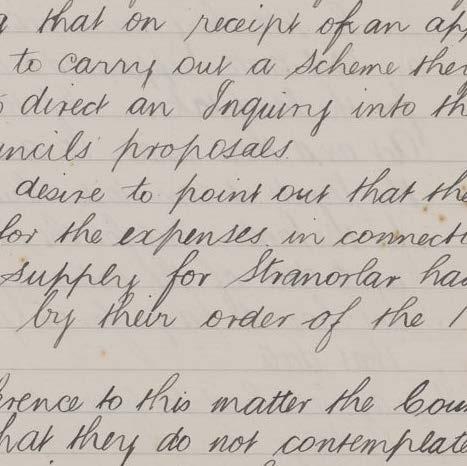 that on receipt of an app
to carry out a scheme they
direct an Inquiry into th
uncils proposals.
desire to point out that the
for the expenses in connecti
supply for Stranorlar had
by their order of the 1
erence to this matter the Cou
hat they do not contemplate